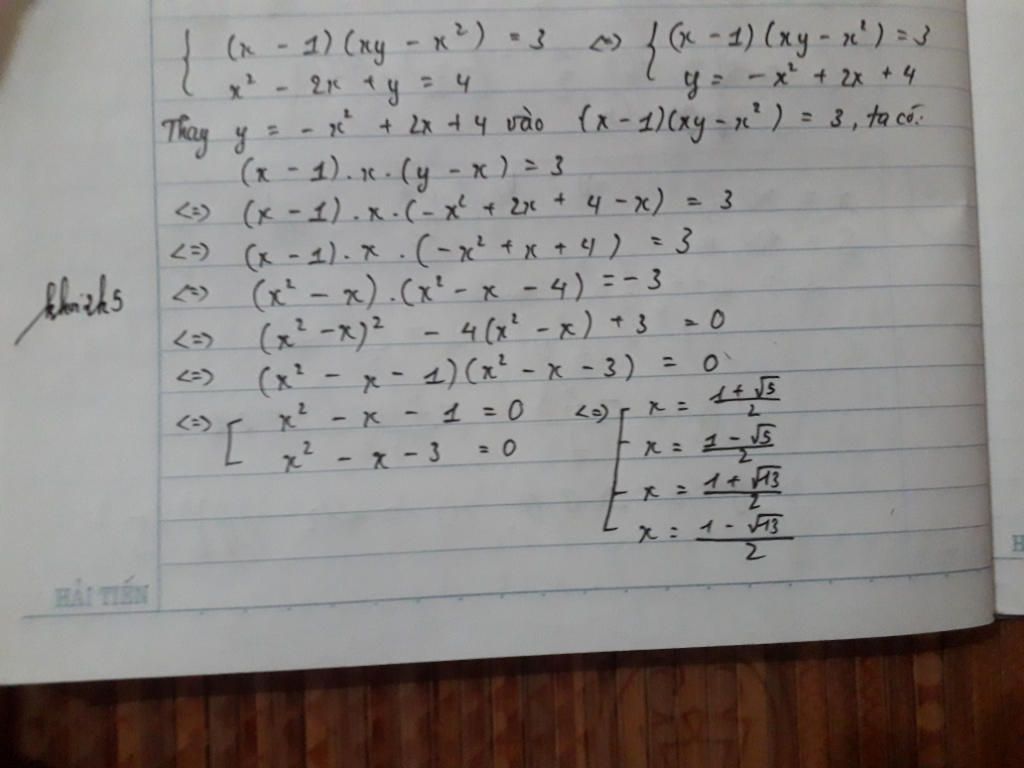 { (x - 1)(xy - x²) = 3 <=> { (x - 1)(xy - x²) = 3
x² - 2x + y = 4 y = - x² + 2x + 4
Thay y = - x² + 2x + 4 vào (x - 1)(xy - x²) = 3, ta có:
(x - 1).x.(y - x) = 3
<=> (x - 1).x.(-x² + 2x + 4 - x) = 3
<=> (x - 1).x.(-x² + x + 4) = 3
<=> (x² - x).(x² - x - 4) = -3
<=> (x² - x)² - 4(x² - x) + 3 = 0
<=> (x² - x - 1)(x² - x - 3) = 0
<=> [ x² - x - 1 = 0 <=> [ x = (1 + √5)/2
x² - x - 3 = 0 x = (1 - √5)/2
x = (1 + √13)/2
x = (1 - √13)/2
HẢI TIẾN
H